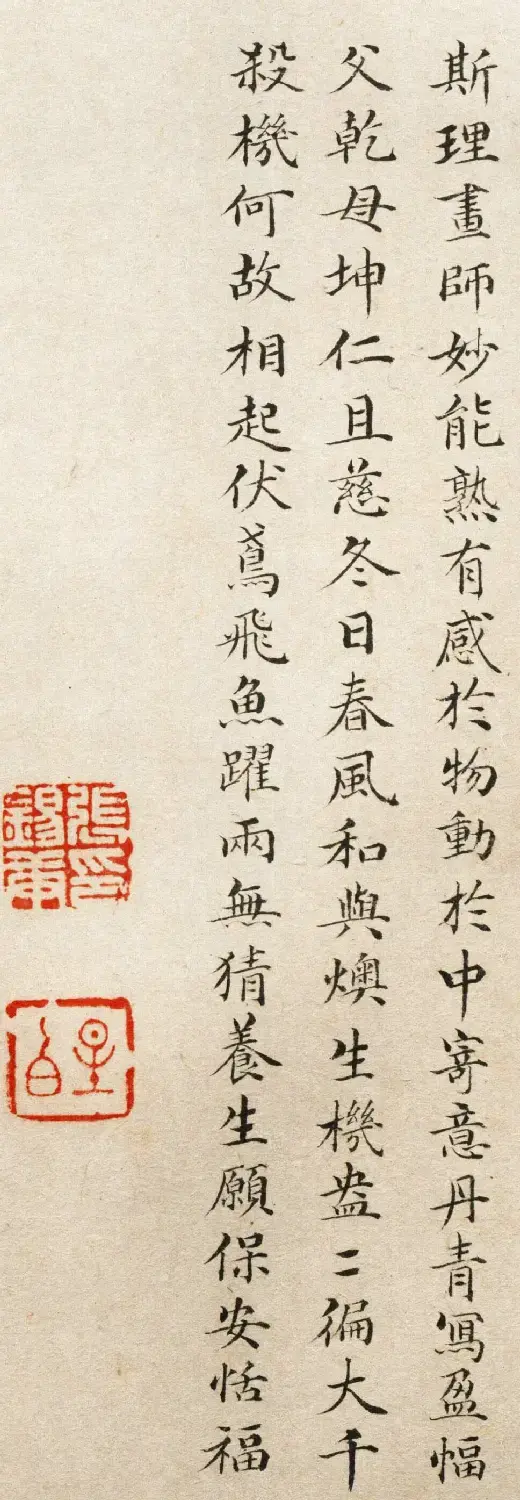 斯理畫師妙能熟有感於物動於中寄意丹青寫盈幅
父乾母坤仁且慈冬日春風和與燠生機盎二徧大千
殺機何故相起伏鳶飛魚躍兩無猜養生願保安恬福